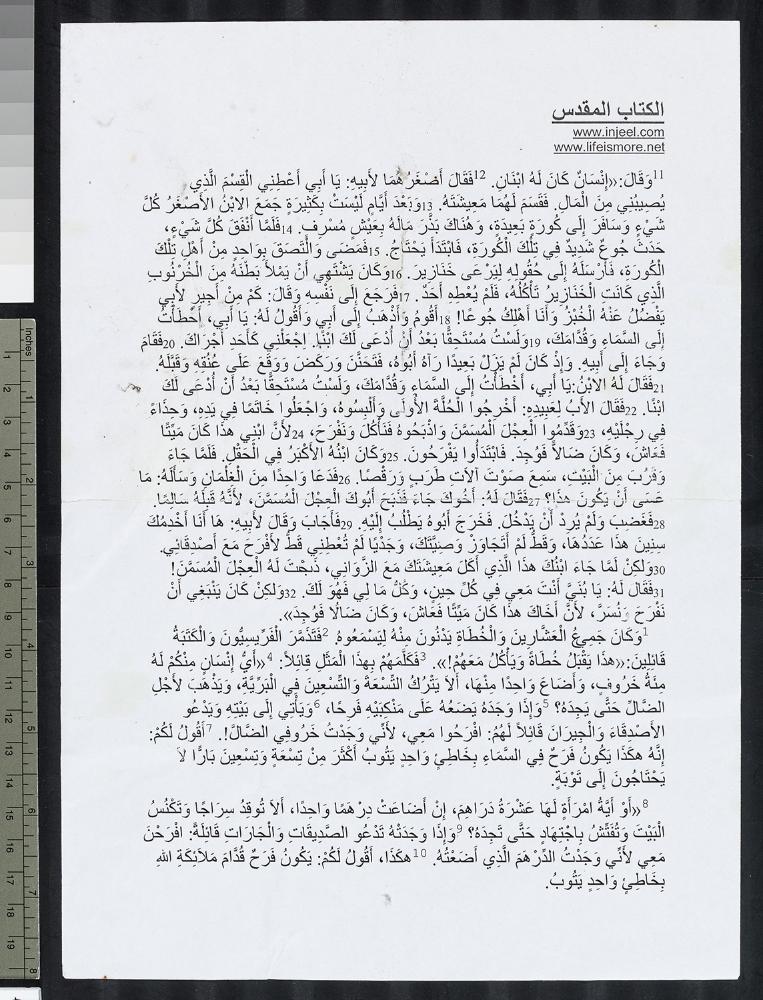 الكتاب المقدس
www.injeel.com
www.lifeismore.net
11وَقَالَ:«إِنْسَانٌ كَانَ لَهُ ابْنَانِ. 12فَقَالَ أَصْغَرُهُمَا لأَبِيهِ: يَا أَبِي أَعْطِنِي الْقِسْمَ الَّذِي
يُصِيبُنِي مِنَ الْمَالِ. فَقَسَمَ لَهُمَا مَعِيشَتَهُ. 13وَبَعْدَ أَيَّامٍ لَيْسَتْ بِكَثِيرَةٍ جَمَعَ الابْنُ الأَصْغَرُ كُلَّ
شَيْءٍ وَسَافَرَ إِلَى كُورَةٍ بَعِيدَةٍ، وَهُنَاكَ بَذَّرَ مَالَهُ بِعَيْشٍ مُسْرِفٍ. 14فَلَمَّا أَنْفَقَ كُلَّ شَيْءٍ،
حَدَثَ جُوعٌ شَدِيدٌ فِي تِلْكَ الْكُورَةِ، فَابْتَدَأَ يَحْتَاجُ. 15فَمَضَى وَالْتَصَقَ بِوَاحِدٍ مِنْ أَهْلِ تِلْكَ
الْكُورَةِ، فَأَرْسَلَهُ إِلَى حُقُولِهِ لِيَرْعَى خَنَازِيرَ. 16وَكَانَ يَشْتَهِي أَنْ يَمْلأَ بَطْنَهُ مِنَ الْخُرْنُوبِ
الَّذِي كَانَتِ الْخَنَازِيرُ تَأْكُلُهُ، فَلَمْ يُعْطِهِ أَحَدٌ. 17فَرَجَعَ إِلَى نَفْسِهِ وَقَالَ: كَمْ مِنْ أَجِيرٍ لأَبِي
يَفْضُلُ عَنْهُ الْخُبْزُ وَأَنَا أَهْلِكُ جُوعًا! 18أَقُومُ وَأَذْهَبُ إِلَى أَبِي وَأَقُولُ لَهُ: يَا أَبِي، أَخْطَأْتُ
إِلَى السَّمَاءِ وَقُدَّامَكَ، 19وَلَسْتُ مُسْتَحِقًّا بَعْدُ أَنْ أُدْعَى لَكَ ابْنًا. اِجْعَلْنِي كَأَحَدِ أَجْرَاكَ. 20فَقَامَ
وَجَاءَ إِلَى أَبِيهِ. وَإِذْ كَانَ لَمْ يَزَلْ بَعِيدًا رَآهُ أَبُوهُ، فَتَحَنَّنَ وَرَكَضَ وَوَقَعَ عَلَى عُنُقِهِ وَقَبَّلَهُ.
21فَقَالَ لَهُ الابْنُ:يَا أَبِي، أَخْطَأْتُ إِلَى السَّمَاءِ وَقُدَّامَكَ، وَلَسْتُ مُسْتَحِقًّا بَعْدُ أَنْ أُدْعَى لَكَ
ابْنًا. 22فَقَالَ الأَبُ لِعَبِيدِهِ: أَخْرِجُوا الْحُلَّةَ الأُولَى وَأَلْبِسُوهُ، وَاجْعَلُوا خَاتَمًا فِي يَدِهِ، وَحِذَاءً
فِي رِجْلَيْهِ، 23وَقَدِّمُوا الْعِجْلَ الْمُسَمَّنَ وَاذْبَحُوهُ فَنَأْكُلَ وَنَفْرَحَ، 24لأَنَّ ابْنِي هذَا كَانَ مَيِّتًا
فَعَاشَ، وَكَانَ ضَالاً فَوُجِدَ. فَابْتَدَأُوا يَفْرَحُونَ. 25وَكَانَ ابْنُهُ الأَكْبَرُ فِي الْحَقْلِ. فَلَمَّا جَاءَ
وَقَرُبَ مِنَ الْبَيْتِ، سَمِعَ صَوْتَ آلاَتِ طَرَبٍ وَرَقْصًا. 26فَدَعَا وَاحِدًا مِنَ الْغِلْمَانِ وَسَأَلَهُ: مَا
عَسَى أَنْ يَكُونَ هذَا؟ 27فَقَالَ لَهُ: أَخُوكَ جَاءَ فَذَبَحَ أَبُوكَ الْعِجْلَ الْمُسَمَّنَ، لأَنَّهُ قَبِلَهُ سَالِمًا.
28فَغَضِبَ وَلَمْ يُرِدْ أَنْ يَدْخُلَ. فَخَرَجَ أَبُوهُ يَطْلُبُ إِلَيْهِ. 29فَأَجَابَ وَقَالَ لأَبِيهِ: هَا أَنَا أَخْدِمُكَ
سِنِينَ هذَا عَدَدُهَا، وَقَطُّ لَمْ أَتَجَاوَزْ وَصِيَّتَكَ، وَجَدْيًا لَمْ تُعْطِنِي قَطُّ لأَفْرَحَ مَعَ أَصْدِقَائِي.
30وَلكِنْ لَمَّا جَاءَ ابْنُكَ هذَا الَّذِي أَكَلَ مَعِيشَتَكَ مَعَ الزَّوَانِي، ذَبَحْتَ لَهُ الْعِجْلَ الْمُسَمَّنَ!
31فَقَالَ لَهُ: يَا بُنَيَّ أَنْتَ مَعِي فِي كُلِّ حِينٍ، وَكُلُّ مَا لِي فَهُوَ لَكَ. 32وَلكِنْ كَانَ يَنْبَغِي أَنْ
نَفْرَحَ وَنُسَرَّ، لأَنَّ أَخَاكَ هذَا كَانَ مَيِّتًا فَعَاشَ، وَكَانَ ضَالًا فَوُجِدَ».
1وَكَانَ جَمِيعُ الْعَشَّارِينَ وَالْخُطَاةِ يَدْنُونَ مِنْهُ لِيَسْمَعُوهُ. 2فَتَذَمَّرَ الْفَرِّيسِيُّونَ وَالْكَتَبَةُ
قَائِلِينَ:«هذَا يَقْبَلُ خُطَاةً وَيَأْكُلُ مَعَهُمْ!». 3فَكَلَّمَهُمْ بِهذَا الْمَثَلِ قِائِلاً: 4«أَيُّ إِنْسَانٍ مِنْكُمْ لَهُ
مِئَةُ خَرُوفٍ، وَأَضَاعَ وَاحِدًا مِنْهَا، أَلاَ يَتْرُكُ التِّسْعَةَ وَالتِّسْعِينَ فِي الْبَرِّيَّةِ، وَيَذْهَبَ لأَجْلِ
الضَّالِّ حَتَّى يَجِدَهُ؟ 5وَإِذَا وَجَدَهُ يَضَعُهُ عَلَى مَنْكِبَيْهِ فَرِحًا، 6وَيَأْتِي إِلَى بَيْتِهِ وَيَدْعُو
الأَصْدِقَاءَ وَالْجِيرَانَ قَائِلاً لَهُمُ: افْرَحُوا مَعِي، لأَنِّي وَجَدْتُ خَرُوفِي الضَّالَّ!. 7أَقُولُ لَكُمْ:
إِنَّهُ هكَذَا يَكُونُ فَرَحٌ فِي السَّمَاءِ بِخَاطِئٍ وَاحِدٍ يَتُوبُ أَكْثَرَ مِنْ تِسْعَةٍ وَتِسْعِينَ بَارًّا لاَ
يَحْتَاجُونَ إِلَى تَوْبَةٍ.
8«أَوْ أَيَّةُ امْرَأَةٍ لَهَا عَشْرَةُ دَرَاهِمَ، إِنْ أَضَاعَتْ دِرْهَمًا وَاحِدًا، أَلاَ تُوقِدُ سِرَاجًا وَتَكْنُسُ
الْبَيْتَ وَتُفَتِّشُ بِاجْتِهَادٍ حَتَّى تَجِدَهُ؟ 9وَإِذَا وَجَدَتْهُ تَدْعُو الصَّدِيقَاتِ وَالْجَارَاتِ قَائِلَةً: افْرَحْنَ
مَعِي لأَنِّي وَجَدْتُ الدِّرْهَمَ الَّذِي أَضَعْتُهُ. 10هكَذَا، أَقُولُ لَكُمْ: يَكُونُ فَرَحٌ قُدَّامَ مَلاَئِكَةِ اللهِ
بِخَاطِئٍ وَاحِدٍ يَتُوبُ.
inches
1
2
3
4
5
6
7
8
1
2
3
4
5
6
7
8
9
10
11
12
13
14
15
16
17
18
19